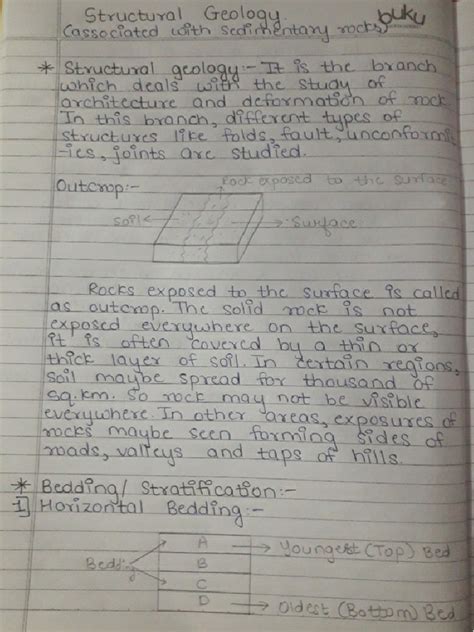 Structural Geology.
(associated with sedimentary rocks)
buku
* Structural geology:- It is the branch
which deals with the study of
architecture and deformation of rock
In this branch, different types of
structures like folds, fault, unconformit
-ies, joints are studied.
Outcrop:-
Rock exposed to the surface
Soil
Surface
Rocks exposed to the surface is called
as outcrop. The solid rock is not
exposed everywhere on the surface,
it is often covered by a thin or
thick layer of soil. In certain regions,
soil maybe spread for thousand of
sq.km. So rock may not be visible
everywhere. In other areas, exposures of
rocks maybe seen forming sides of
roads, valleys and taps of hills.
* Bedding/ Stratification:-
1] Horizontal Bedding:-
A
Youngest (Top) Bed
Bedding
B
C
D
Oldest (Bottom) Bed